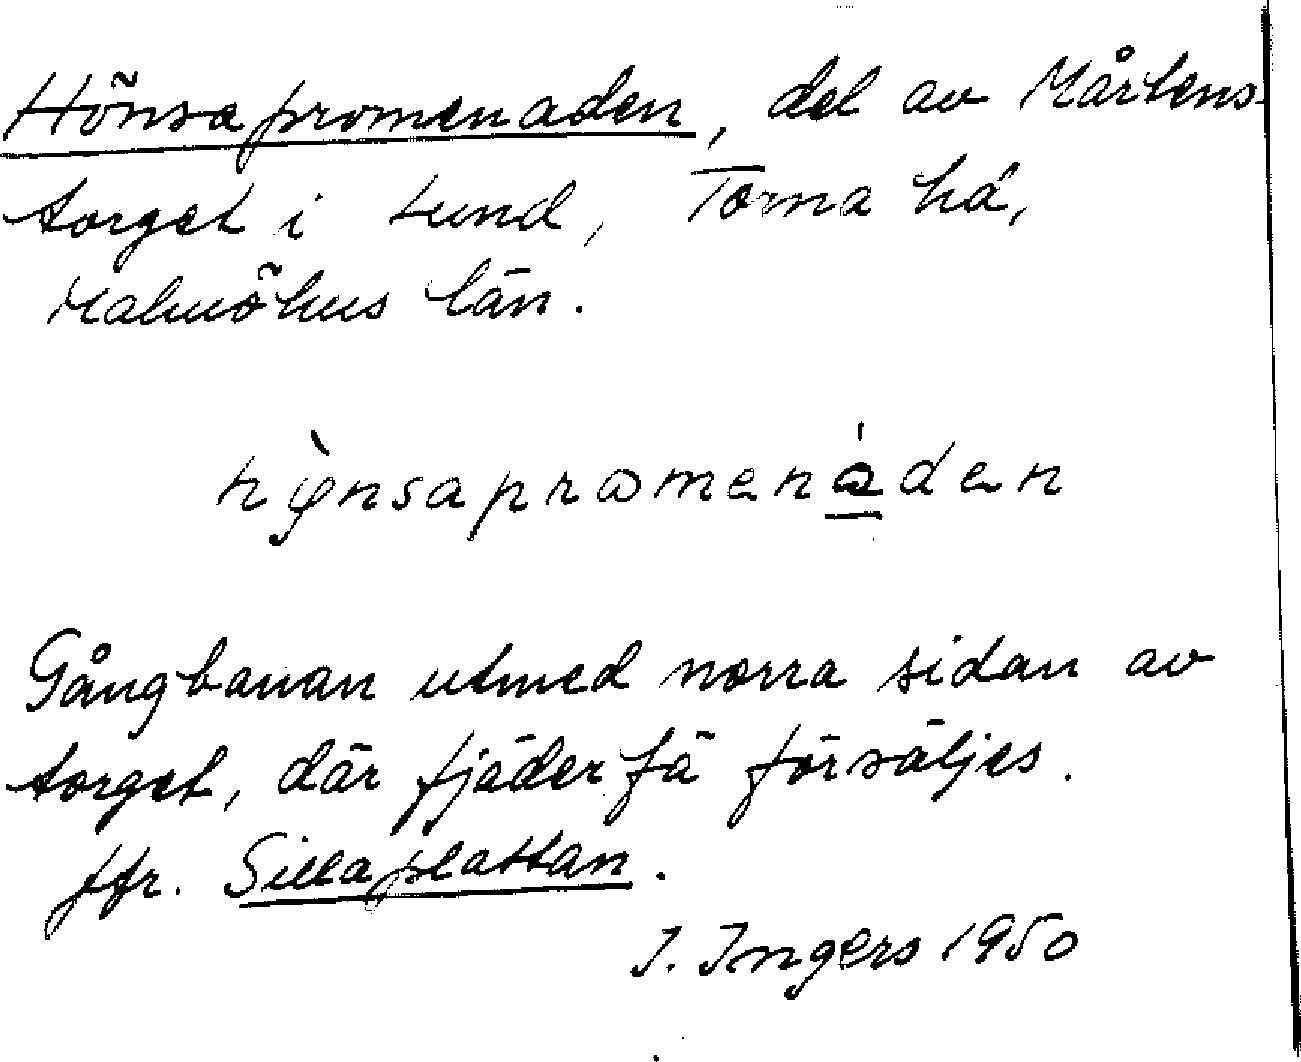 Hönsapromenaden, del av Mårtens-
torget i Lund, Torna hd,
Malmöhus län.
hỳnsapromenáden
Gångbanan utmed norra sidan av
torget, där fjäderfä försäljes.
Jfr. Sillaplattan.
I. Ingers 1950